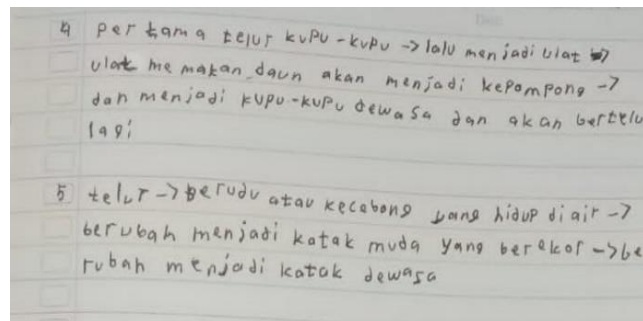 4 pertama telur kupu-kupu -> lalu menjadi ulat ->
ulat memakan daun akan menjadi kepompong ->
dan menjadi kupu-kupu dewasa dan akan bertelu
lagi
5 telur -> berudu atau kecebong yang hidup di air ->
berubah menjadi katak muda yang berekor -> be
rubah menjadi katak dewasa